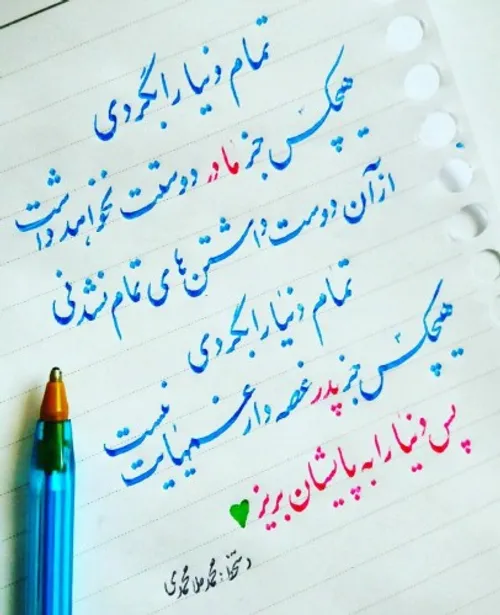 تمام دنیا را بگردی
هیچکس جز مادر دوستت نخواهد داشت
از آن دوست داشتن های تمام نشدنی
تمام دنیا را بگردی
هیچکس جز پدر غصه دار غمهایت نیست
پس دنیا را به پایشان بریز
دستخط: محمد ملامحمدی